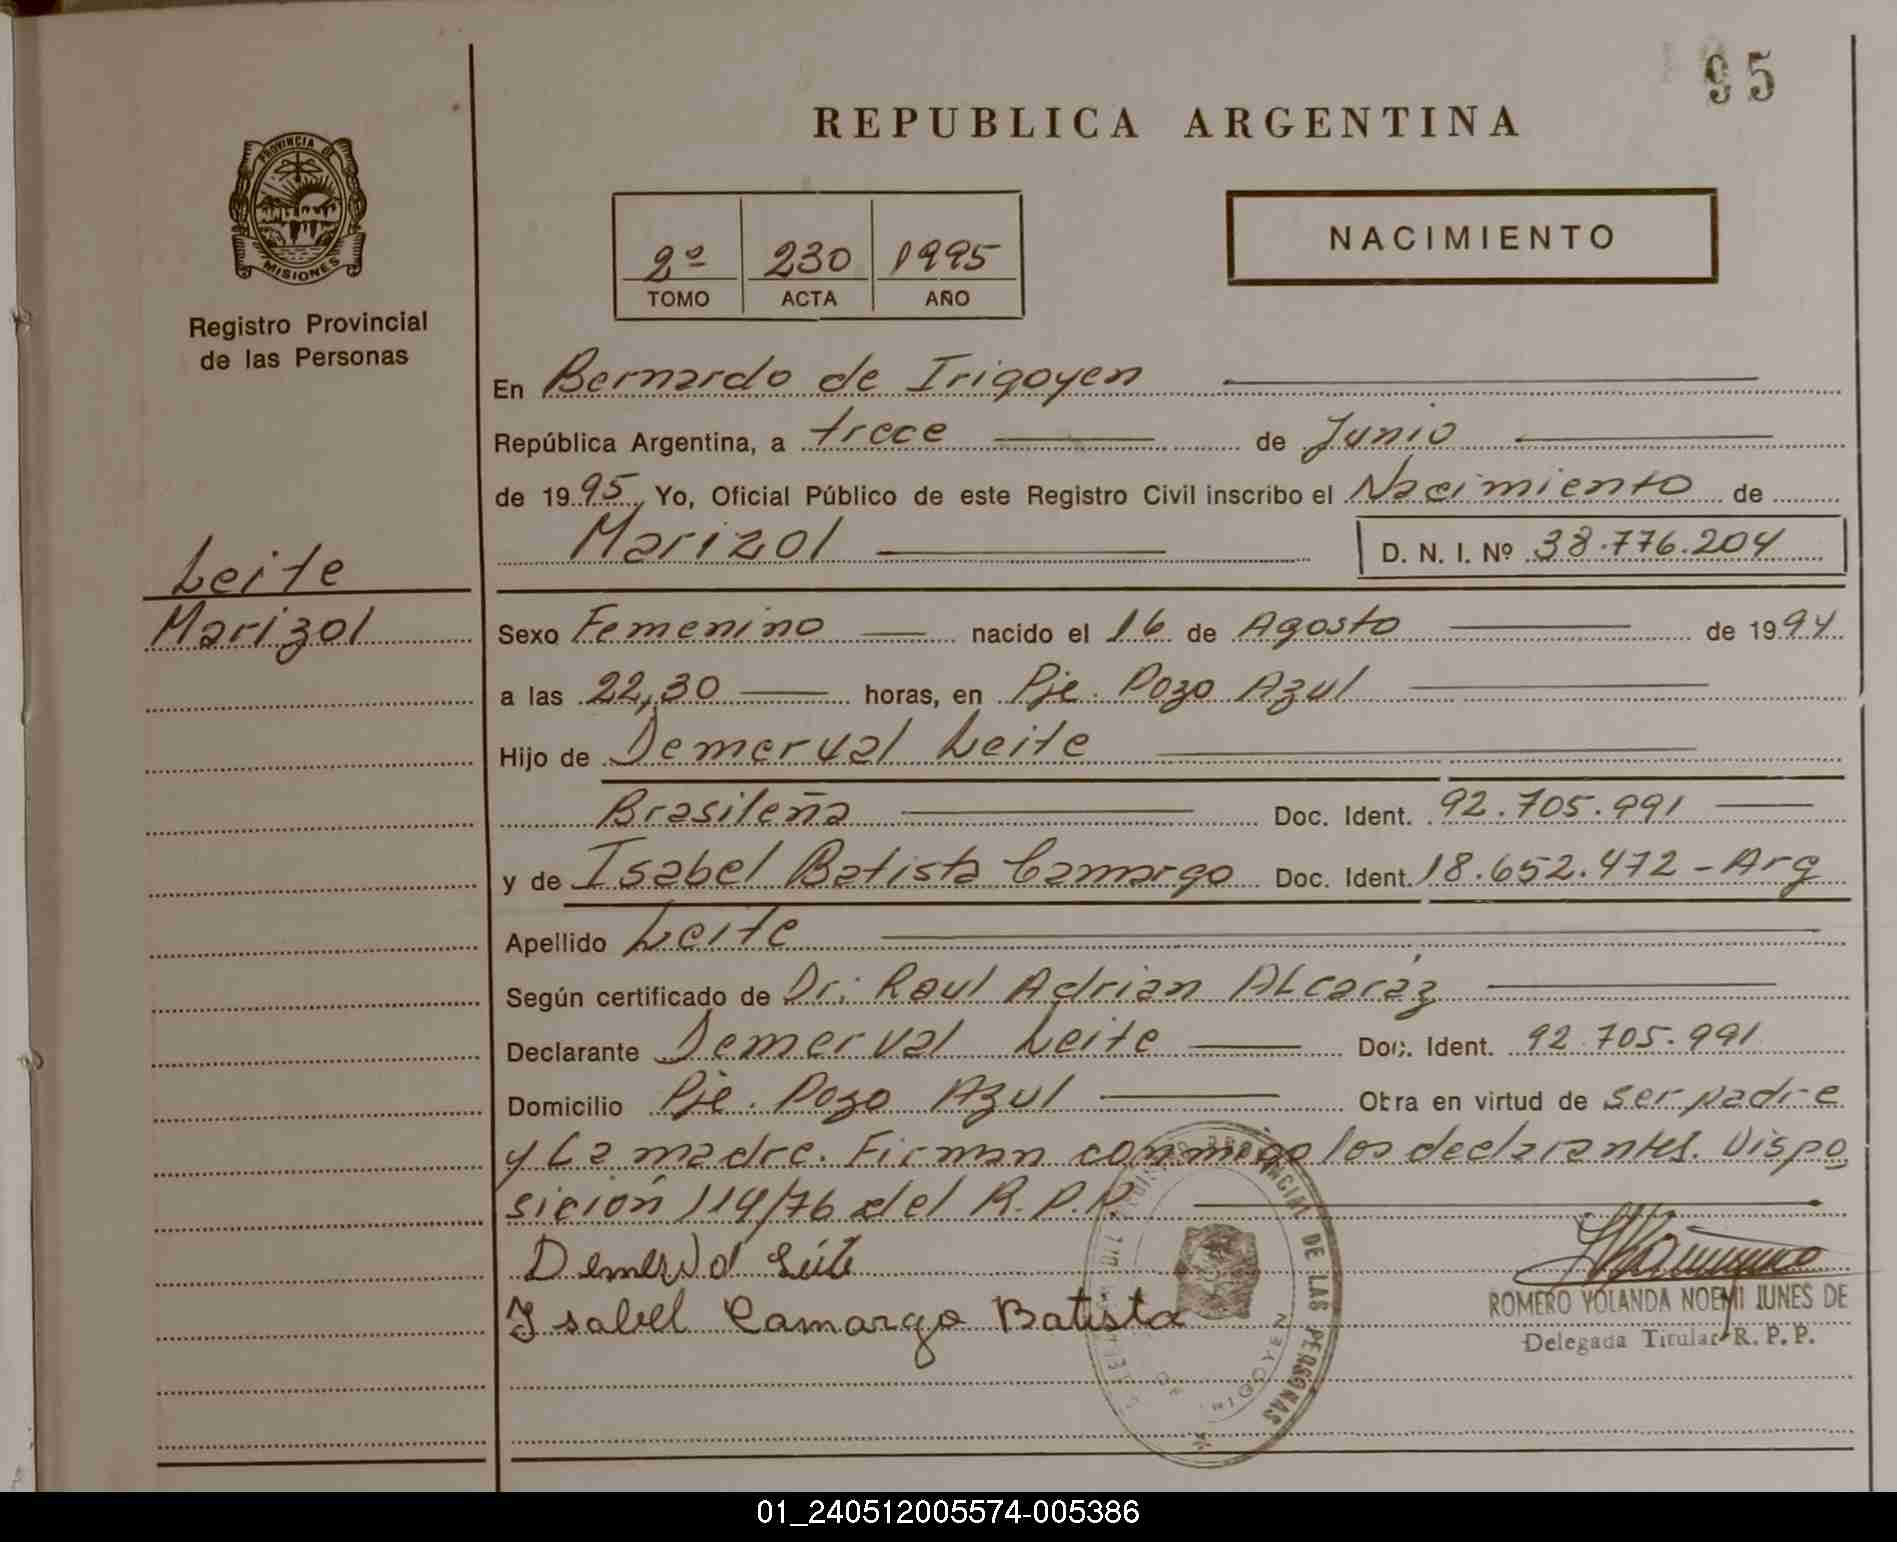 95
REPUBLICA ARGENTINA
PROVINCIA DE
MISIONES
Registro Provincial
de las Personas
2º 230 1995
TOMO ACTA AÑO
NACIMIENTO
En Bernardo de Irigoyen
República Argentina, a trece de Junio
de 1995 Yo, Oficial Público de este Registro Civil inscribo el Nacimiento de
Marizol D. N. I. Nº 38.776.204
Leite
Marizol
Sexo Femenino nacido el 16 de Agosto de 1994
a las 22,30 horas, en Pje. Pozo Azul
Hijo de Demerval Leite
Brasileña Doc. Ident. 92.705.991
y de Isabel Batista Camargo Doc. Ident. 18.652.472 - Arg
Apellido Leite
Según certificado de Dr. Raul Adrian ALcaráz
Declarante Demerval Leite Doc. Ident. 92.705.991
Domicilio Pje. Pozo Azul Obra en virtud de ser padre
y La madre. Firman conmigo los declarantes. Dispo
sición 114/76 del R.P.P.
Demerval Leite
Isabel Camargo Batista
PROVINCIAL DE LAS PERSONAS
DE IRIGOYEN
ROMERO YOLANDA NOEMI IUNES DE
Delegada Titular R. P. P.
01_240512005574-005386